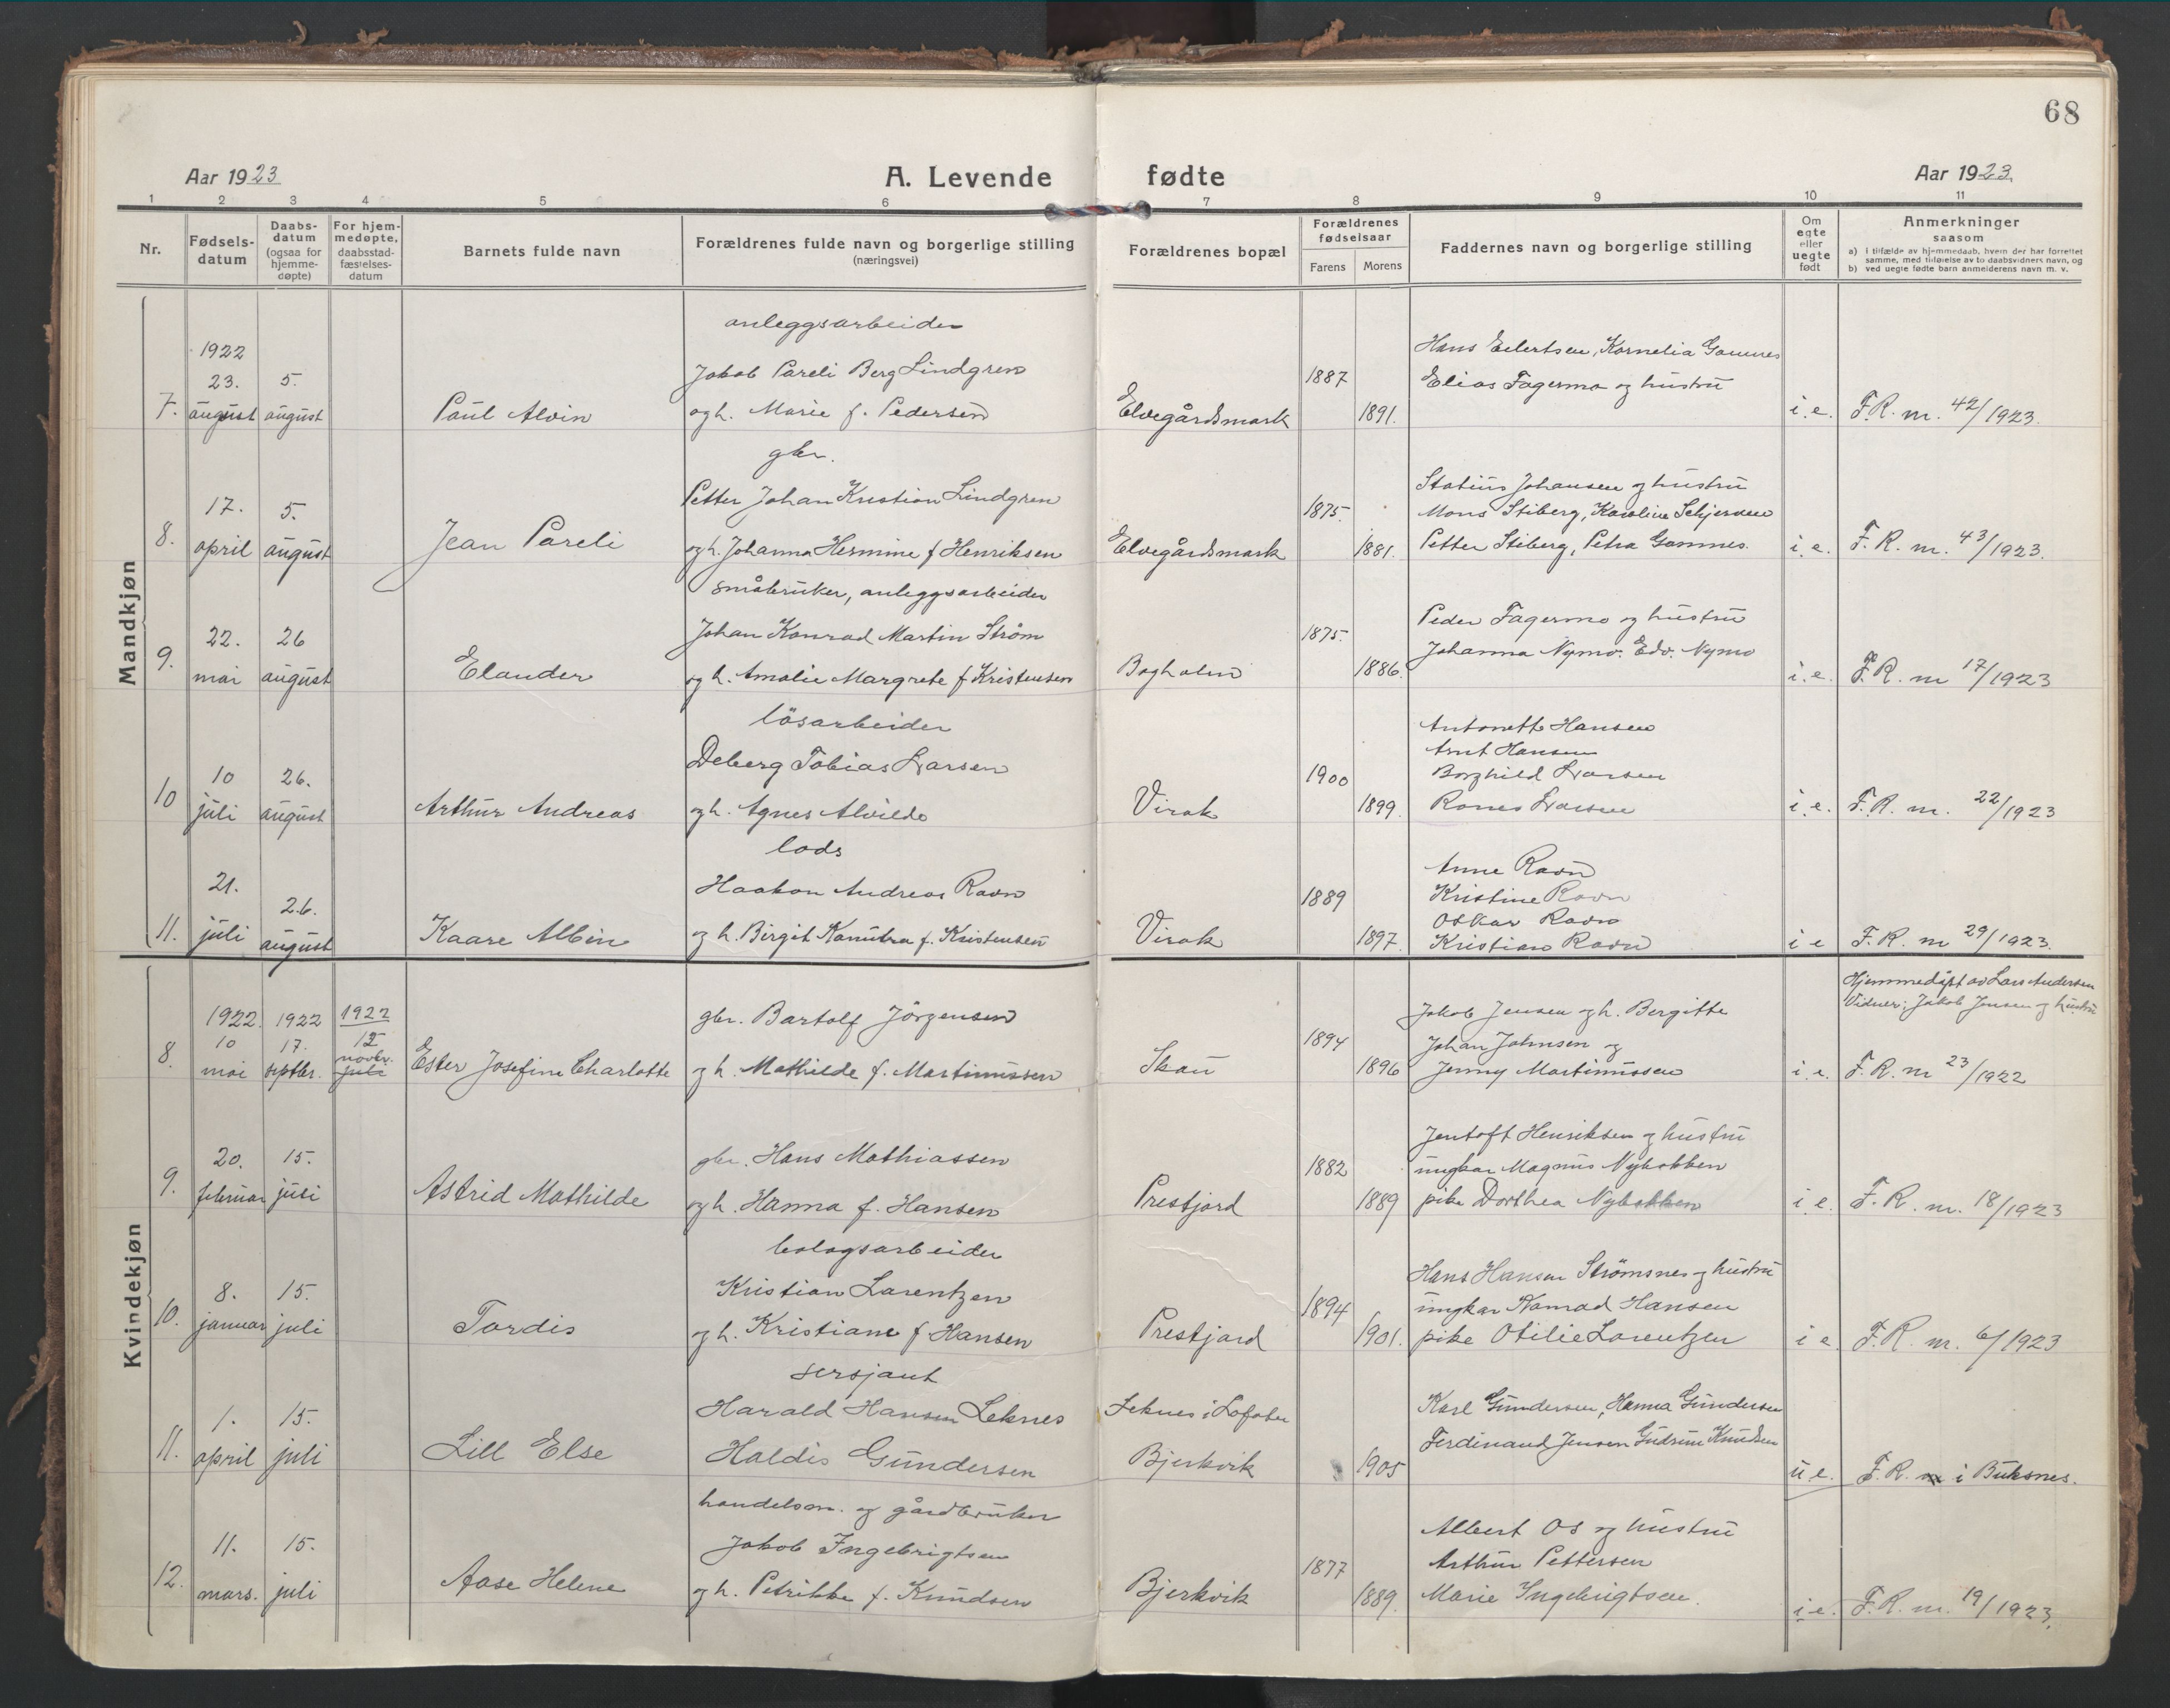 68
Aar 1923
A. Levende fødte
Aar 1923.
1 2 3 4 5 6 7 8 9 10 11
Nr.
Fødsels-
datum
Daabs-
datum
(ogsaa for
hjemme-
døpte)
For hjem-
medøpte,
daabsstad-
fæstelses-
datum
Barnets fulde navn
Forældrenes fulde navn og borgerlige stilling
(næringsvei)
Forældrenes bopæl
Forældrenes
fødselsaar
Farens Morens
Faddernes navn og borgerlige stilling
Om
egte
eller
uegte
født
Anmerkninger
saasom
a) i tilfælde av hjemmedaab, hvem der har forrettet
samme, med tilføielse av to daabsvidners navn, og
b) ved uegte fødte barn anmelderens navn m. v.
Mandkjøn
7.
1922
23.
august
5.
august
Paul Alvin
anleggsarbeider
Jakob Pareli Berg Lindgren
og h. Marie f. Pedersen
Elvegårdsmark
1887
1891.
Hans Eilertsen, Kornelia Gamnes
Elias Fagermo og hustru
i. e.
F.R. nr. 42/1923.
8.
17.
april
5.
august
Jean Pareli
gbr.
Petter Johan Kristian Lindgren
og h. Johanna Hermine f Henriksen
Elvegårdsmark
1875.
1881.
Statius Johansen og hustru
Mons Stiberg, Karoline Schjervew
Petter Stiberg, Petra Gamnes.
i. e.
F. R. nr. 43/1923.
9.
22.
mai
26
august
Elander
småbruker, anleggsarbeider
Johan Konrad Martin Strøm
og h. Amalie Margrete f Kristensen
Bogholm
1875.
1886.
Peder Fagermo og hustru
Johanna Nymo. Edv. Nymo
i. e.
F.R. nr 17/1923
10
10
juli
26.
august
Arthur Andreas
løsarbeider
Deberg Tobias Larsen
og h. Agnes Alvilde
Virak
1900
1899.
Antonette Hansen
Arnt Hansen
Borghild Larsen
Larsen
i. e.
F. R. nr. 22/1923
11.
21.
juli
26.
august
Kaare Albin
lods
Haakon Andreas Ravn
og h. Birgit Kanutra f. Kristensen
Virak
1889
1897.
Anne Ravn
Kristine Ravn
Oskar Ravn
Kristian Ravn
i e
F. R. nr 29/1923.
Kvindekjøn
8.
1922.
10
mai
1922
17.
septbr.
1922
12
novbr.
juli
Ester Josefine Charlotte
gbr. Bartolf Jörgensen
og h. Mathilde f. Martinussen
Skau
1894
1896
Jakob Jensen og h. Bergitte
Johan Johnsen og
Jenny Martinussen
i. e.
Hjemmedøpt av Lars Andersen
Vidner: Jakob Jensen og hustru
F. R. nr 23/1922
9.
20.
februar
15.
juli
Astrid Mathilde
gbr. Hans Mathiassen
og h. Hanna f. Hansen
Prestjord
1882
1889
Jentoft Henriksen og hustru
ungkar Magnus Nybakken
pike Dorthea Nybakken
i. e.
F. R. nr. 18/1923
10.
8.
januar
15.
juli
Tordis
bolagsarbeider
Kristian Larentzen
og h. Kristiane f Hansen
Prestjord
1894
1901.
Hans Hansen Strömsnes og hustru
ungkar Konrad Hansen
pike Otilie Lorentzen
i e.
F. R. nr. 6/1923
11.
1.
april
15.
juli
Lill Else
sersjant
Harald Hansen Leknes
Haldis Gundersen
Leknes i Lofoten
Bjerkvik
1905
Karl Gundersen, Hanna Gundersen
Ferdinand Jensen Gudrun Knudsen
u e.
F. R. nr i Buksnes.
12.
11.
mars.
15.
juli
Aase Helene
handelsm. og gårdbruker
Jakob Ingebrigtsen
og h. Petrikke f. Knudsen
Bjerkvik
1877
1889.
Albert Os og hustru
Arthur Pettersen
Marie Ingebrigtsen.
i. e.
F. R. nr. 19/1923.